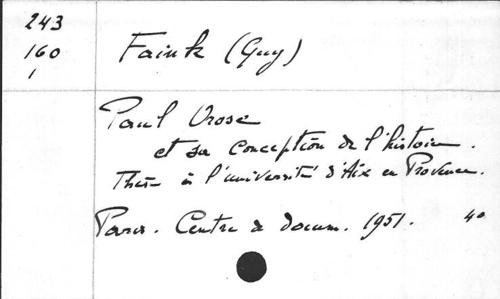 243
160
1
Faink (Guy)
Paul Orose
et sa conception de l'histoire.
Thèse à l'université d'Aix en Provence.
Paris. Centre de docum. 1951. 4°